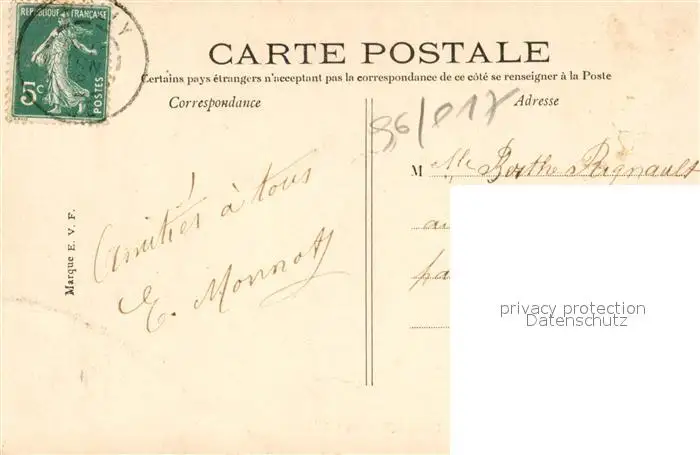 REPUBLIQUE FRANÇAISE
5c
POSTES
CARTE POSTALE
Certains pays étrangers n'acceptent pas la correspondance de ce côté se renseigner à la Poste
Correspondance
Adresse
96/017
Amitiés à tous
E. Monnot
Marque E. V. F.
M elle Berthe Regnault
privacy protection
Datenschutz